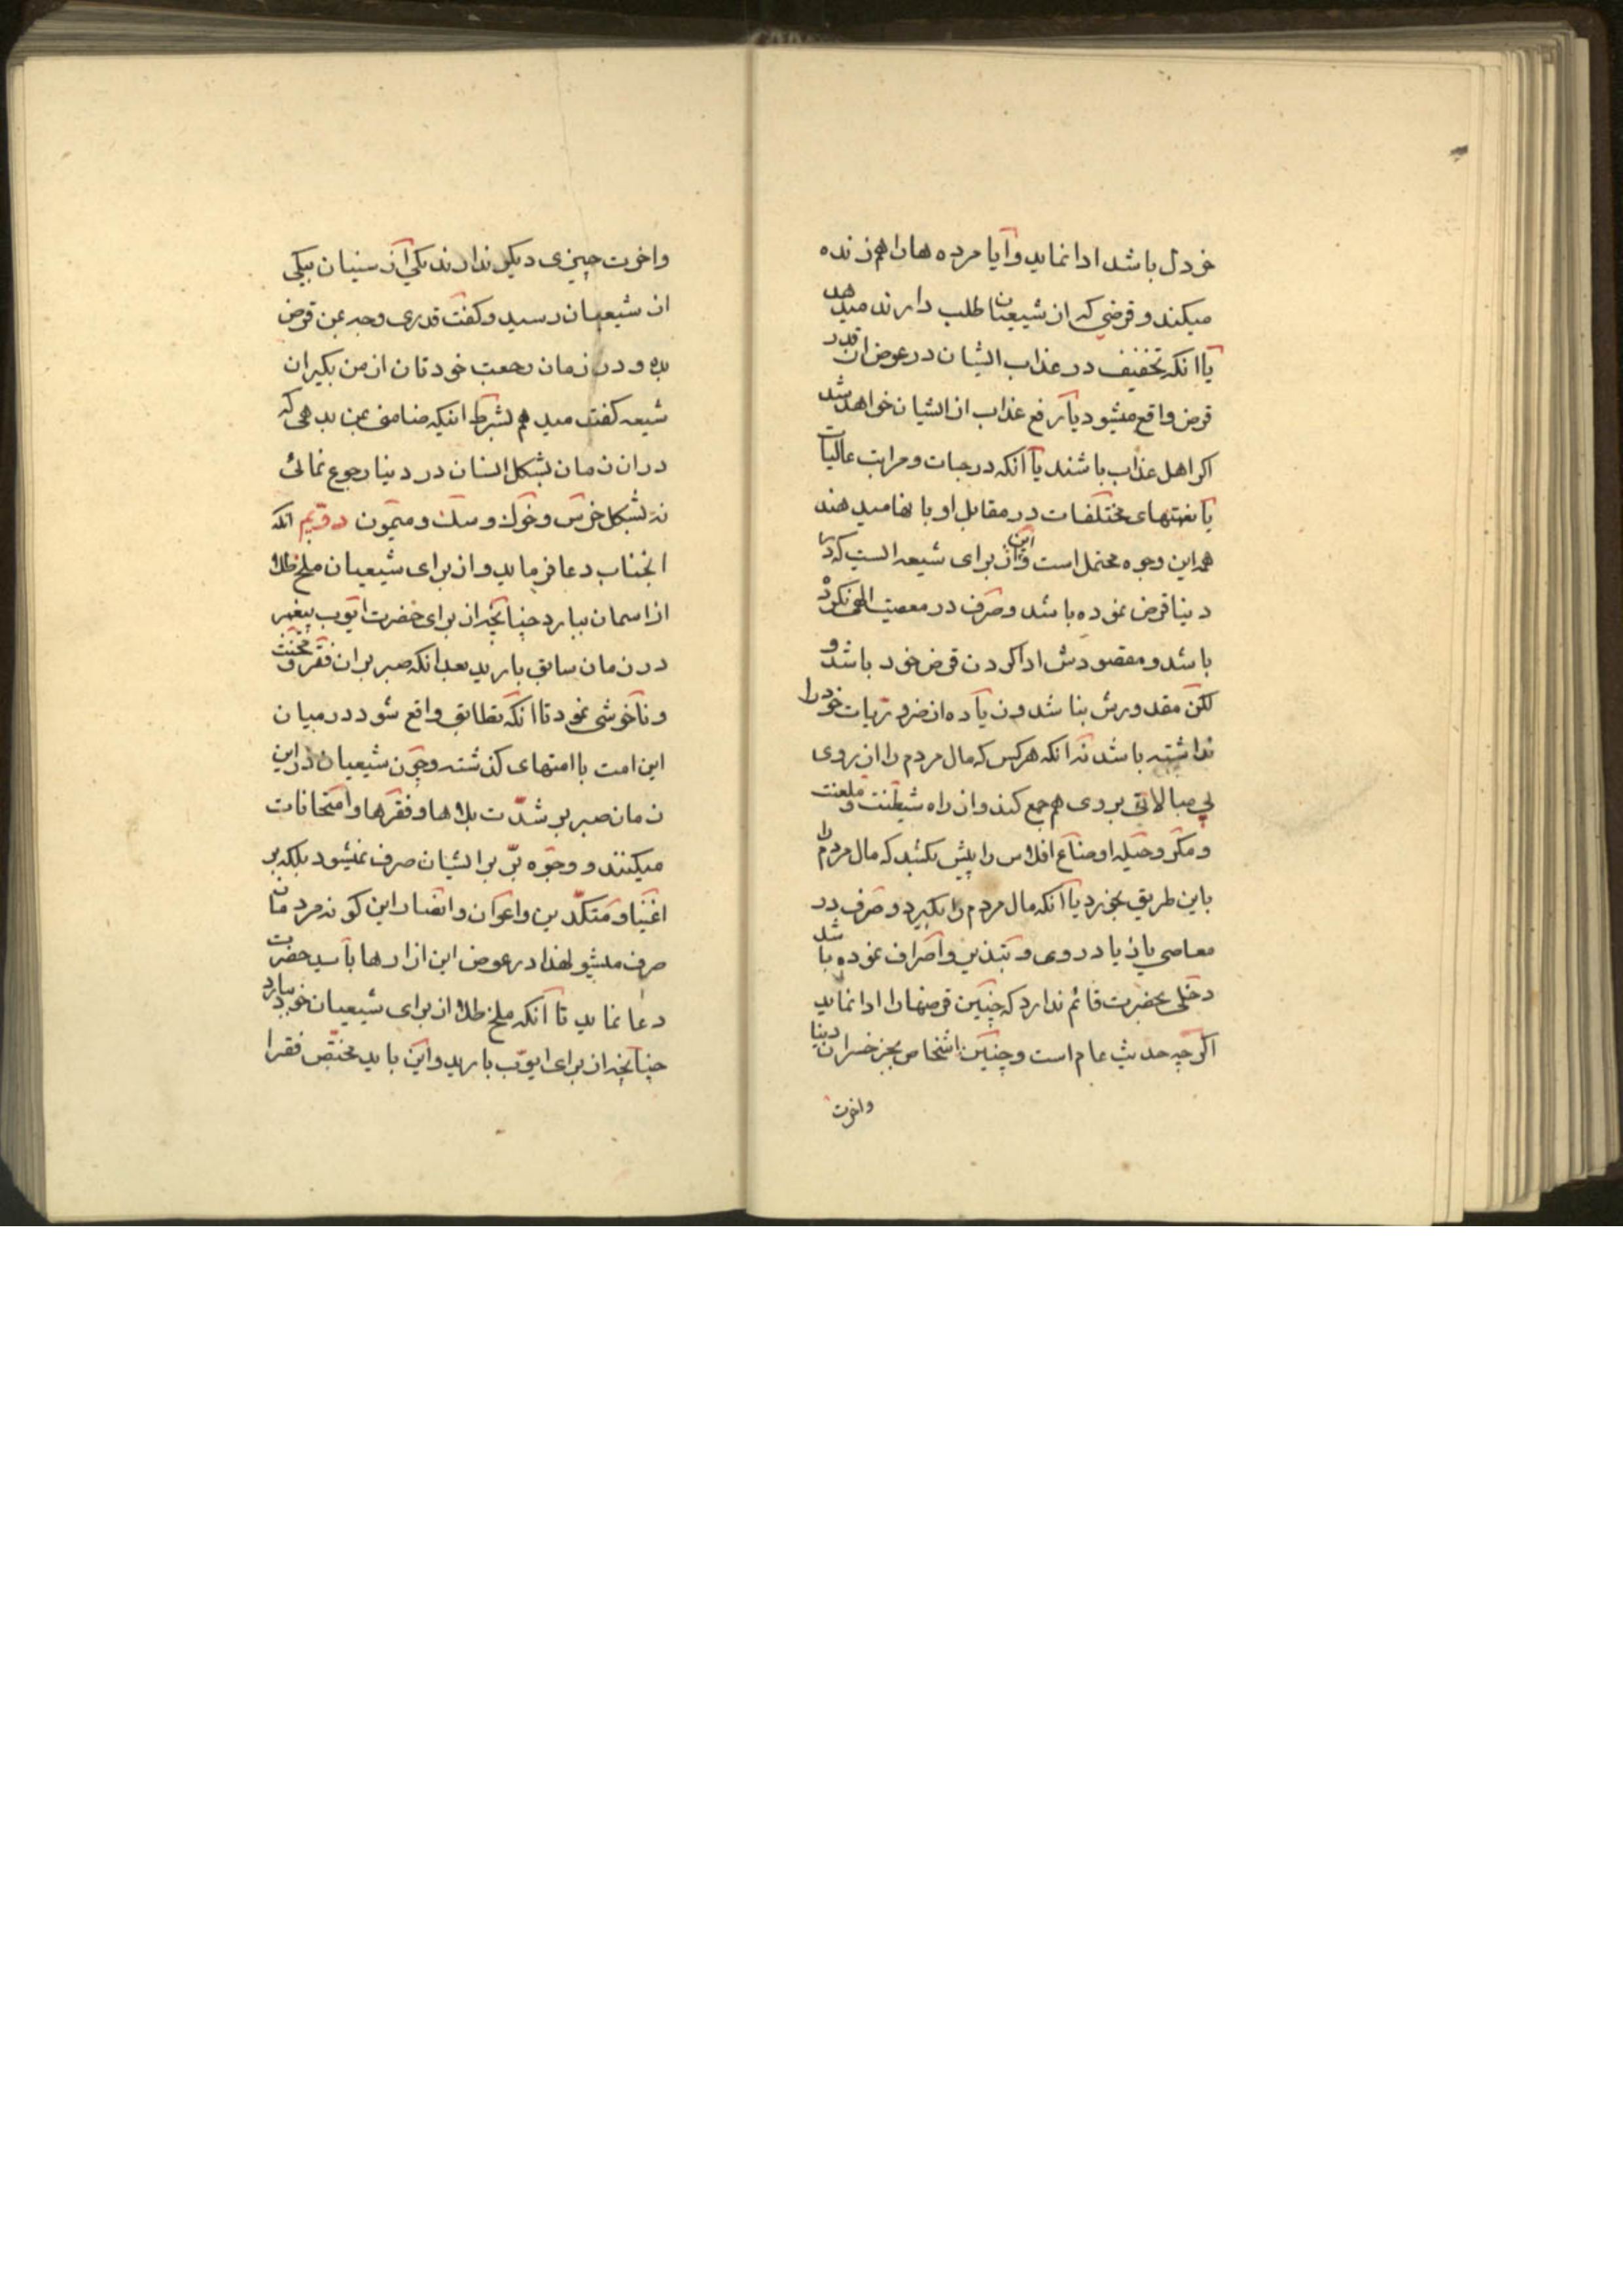 خردل باشد ادا نماید و آیا مرده هارا هم زنده
میکند و قرضی که از شیعیان طلب دارند میدهد
یا انکه تخفیف در عذاب ایشان در عوض ان قدر
قرض واقع میشود یا رفع عذاب از ایشان خواهد شد
اکر اهل عذاب باشند یا انکه درجات و مراتب عالیات
یا نعمتهای مختلفات در مقابل او بانها میدهند
همه این وجوه محتمل است و این از برای شیعه ایست که در
دنیا قرض نموده باشد و صرف در معصیت الهی نکرده
باشد و مقصودش ادا کردن قرض خود باشد و
لکن مقدورش نباشد و زیاده از ضروریات خود را
نداشته باشد نه انکه هر کس که مال مردم را از روی
بی مبالاتی بر روی هم جمع کند و از راه شیطنت و ملعنت
و مکر و حیله اوضاع افلاس را پیش بکشد که مال مردم را
باین طریق بخورد یا انکه مال مردم را بکیرد و صرف در
معاصی یا زیاد روی و تبذیر و اصراف نموده باشد
دخلی بحضرت قائم ندارد که چنین قرضهارا ادا نماید
اکرچه حدیث عام است و چنین اشخاص بجز خسران دنیا
واخرت
واخرت چیزی دیکر ندارند یکی از سنیان بیکی
از شیعیان رسید و کفت قدری وجه بمن قرض
بده و در زمان رجعت خودتان از من بکیر ان
شیعه کفت میدهم بشرط اینکه ضامنی بمن بدهی که
در ان زمان بشکل انسان در دنیا رجوع نمائی
نه بشکل خرس و خوک و سک و میمون دویم انکه
انجناب دعا فرماید و از برای شیعیان ملخ طلا
از اسمان ببارد چنانچه از برای حضرت ایوب پیغمبر
در زمان سابق بارید بعد انکه صبر بر ان فقر و محنت
و ناخوشی نمود تا انکه تطابق واقع شود در میان
این امت با امتهای کذشته و چون شیعیان در این
زمان صبر بر شدت بلاها و فقرها و امتحانات
میکنند و وجوه بر بر ایشان صرف نمیشود بلکه بر
اغنیا و متکدین و اعوان و انصار این کونه مردمان
صرف میشو لهذا در عوض این ازارها باید حضرت
دعا نماید تا انکه ملخ طلا از برای شیعیان خود ببارد
چنانچه از برای ایوب بارید و این باید مختص فقرا